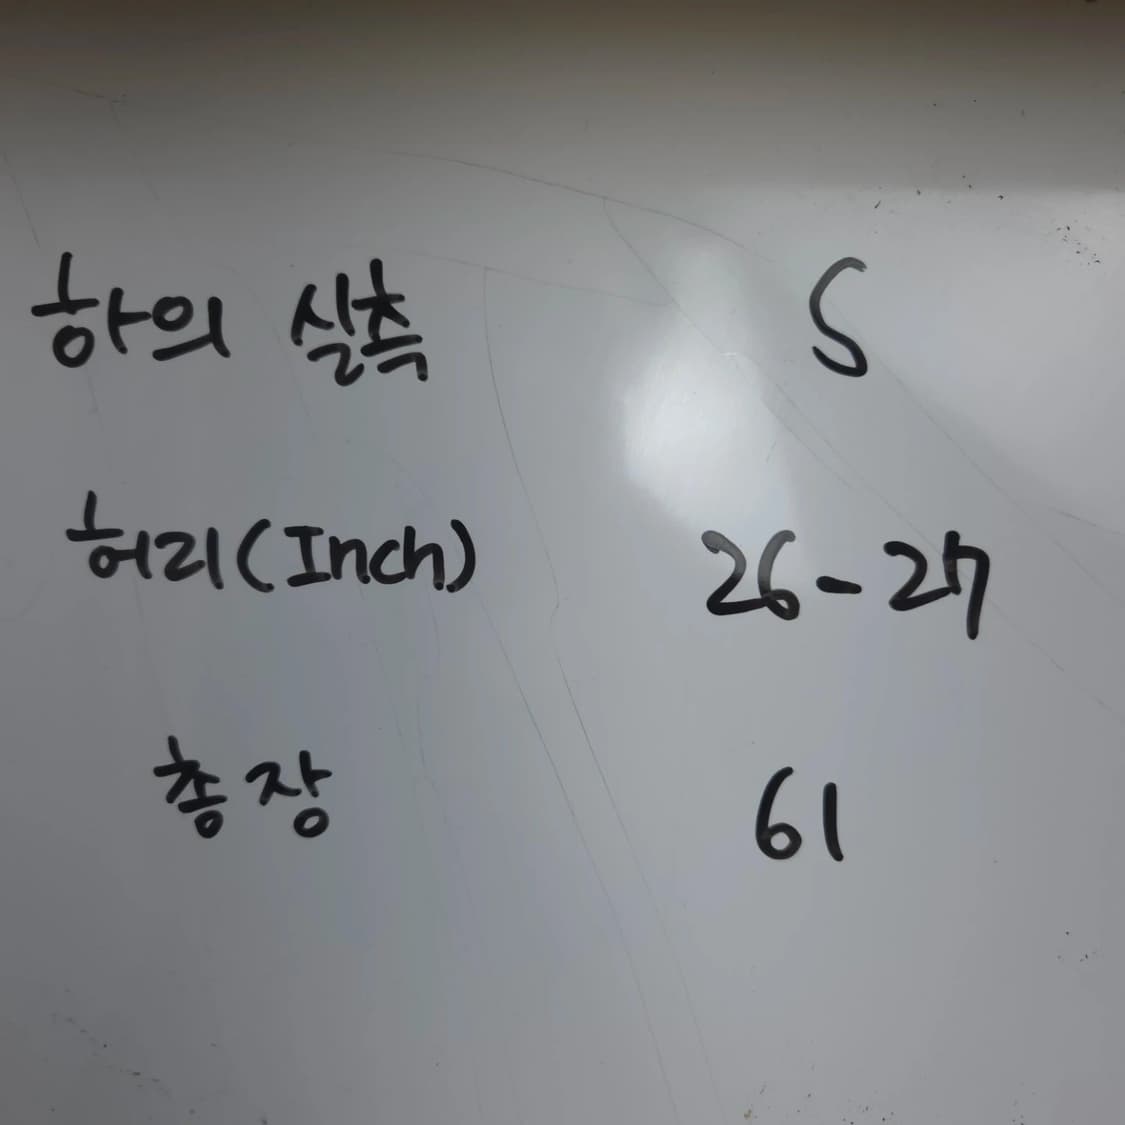 하의 실측 S
허리(Inch) 26-27
총장 61